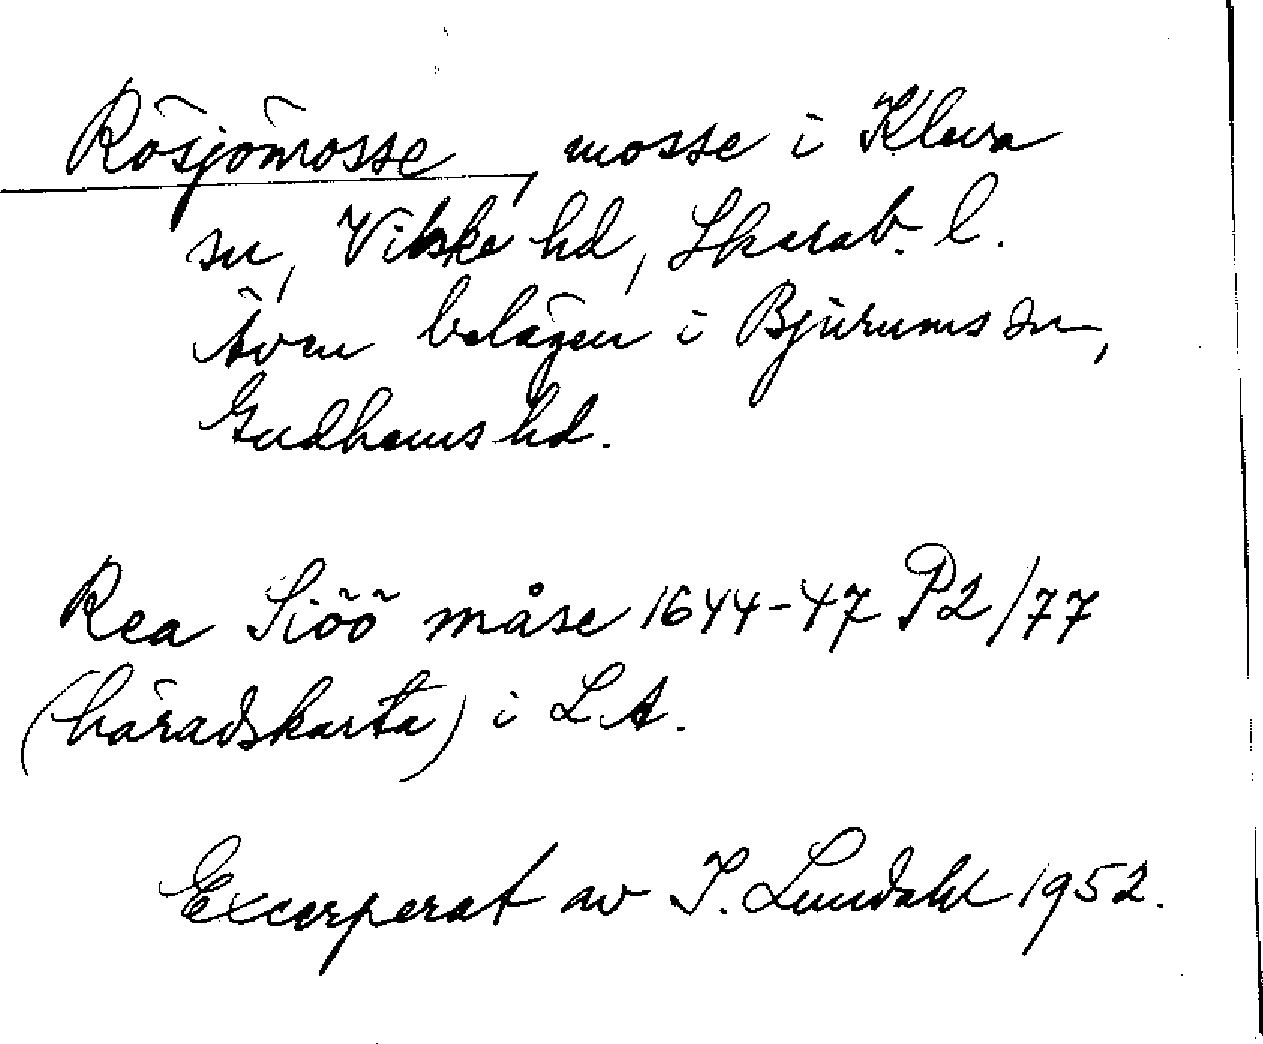 Rösjömosse, mosse i Kleva
sn, Vilske hd, Skarab. l.
Även belägen i Bjurums sn,
Gudhems hd.
Rea Siöö måse 1644-47 P2/77
(häradskarta) i LA.
Excerperat av I. Lundahl 1952.